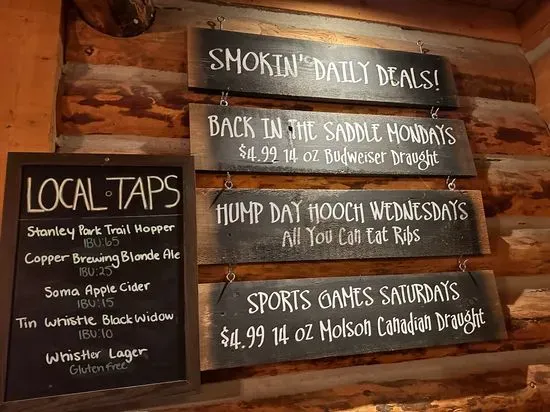 SMOKIN' DAILY DEALS!
BACK IN THE SADDLE MONDAYS
$4.99 14 oz Budweiser Draught
HUMP DAY HOOCH WEDNESDAYS
All You Can Eat Ribs
SPORTS GAMES SATURDAYS
$4.99 14 oz Molson Canadian Draught
LOCAL TAPS
Stanley Park Trail Hopper
IBU:65
Copper Brewing Blonde Ale
IBU:25
Soma Apple Cider
IBU:15
Tin Whistle Black Widow
IBU:10
Whistler Lager
Gluten Free